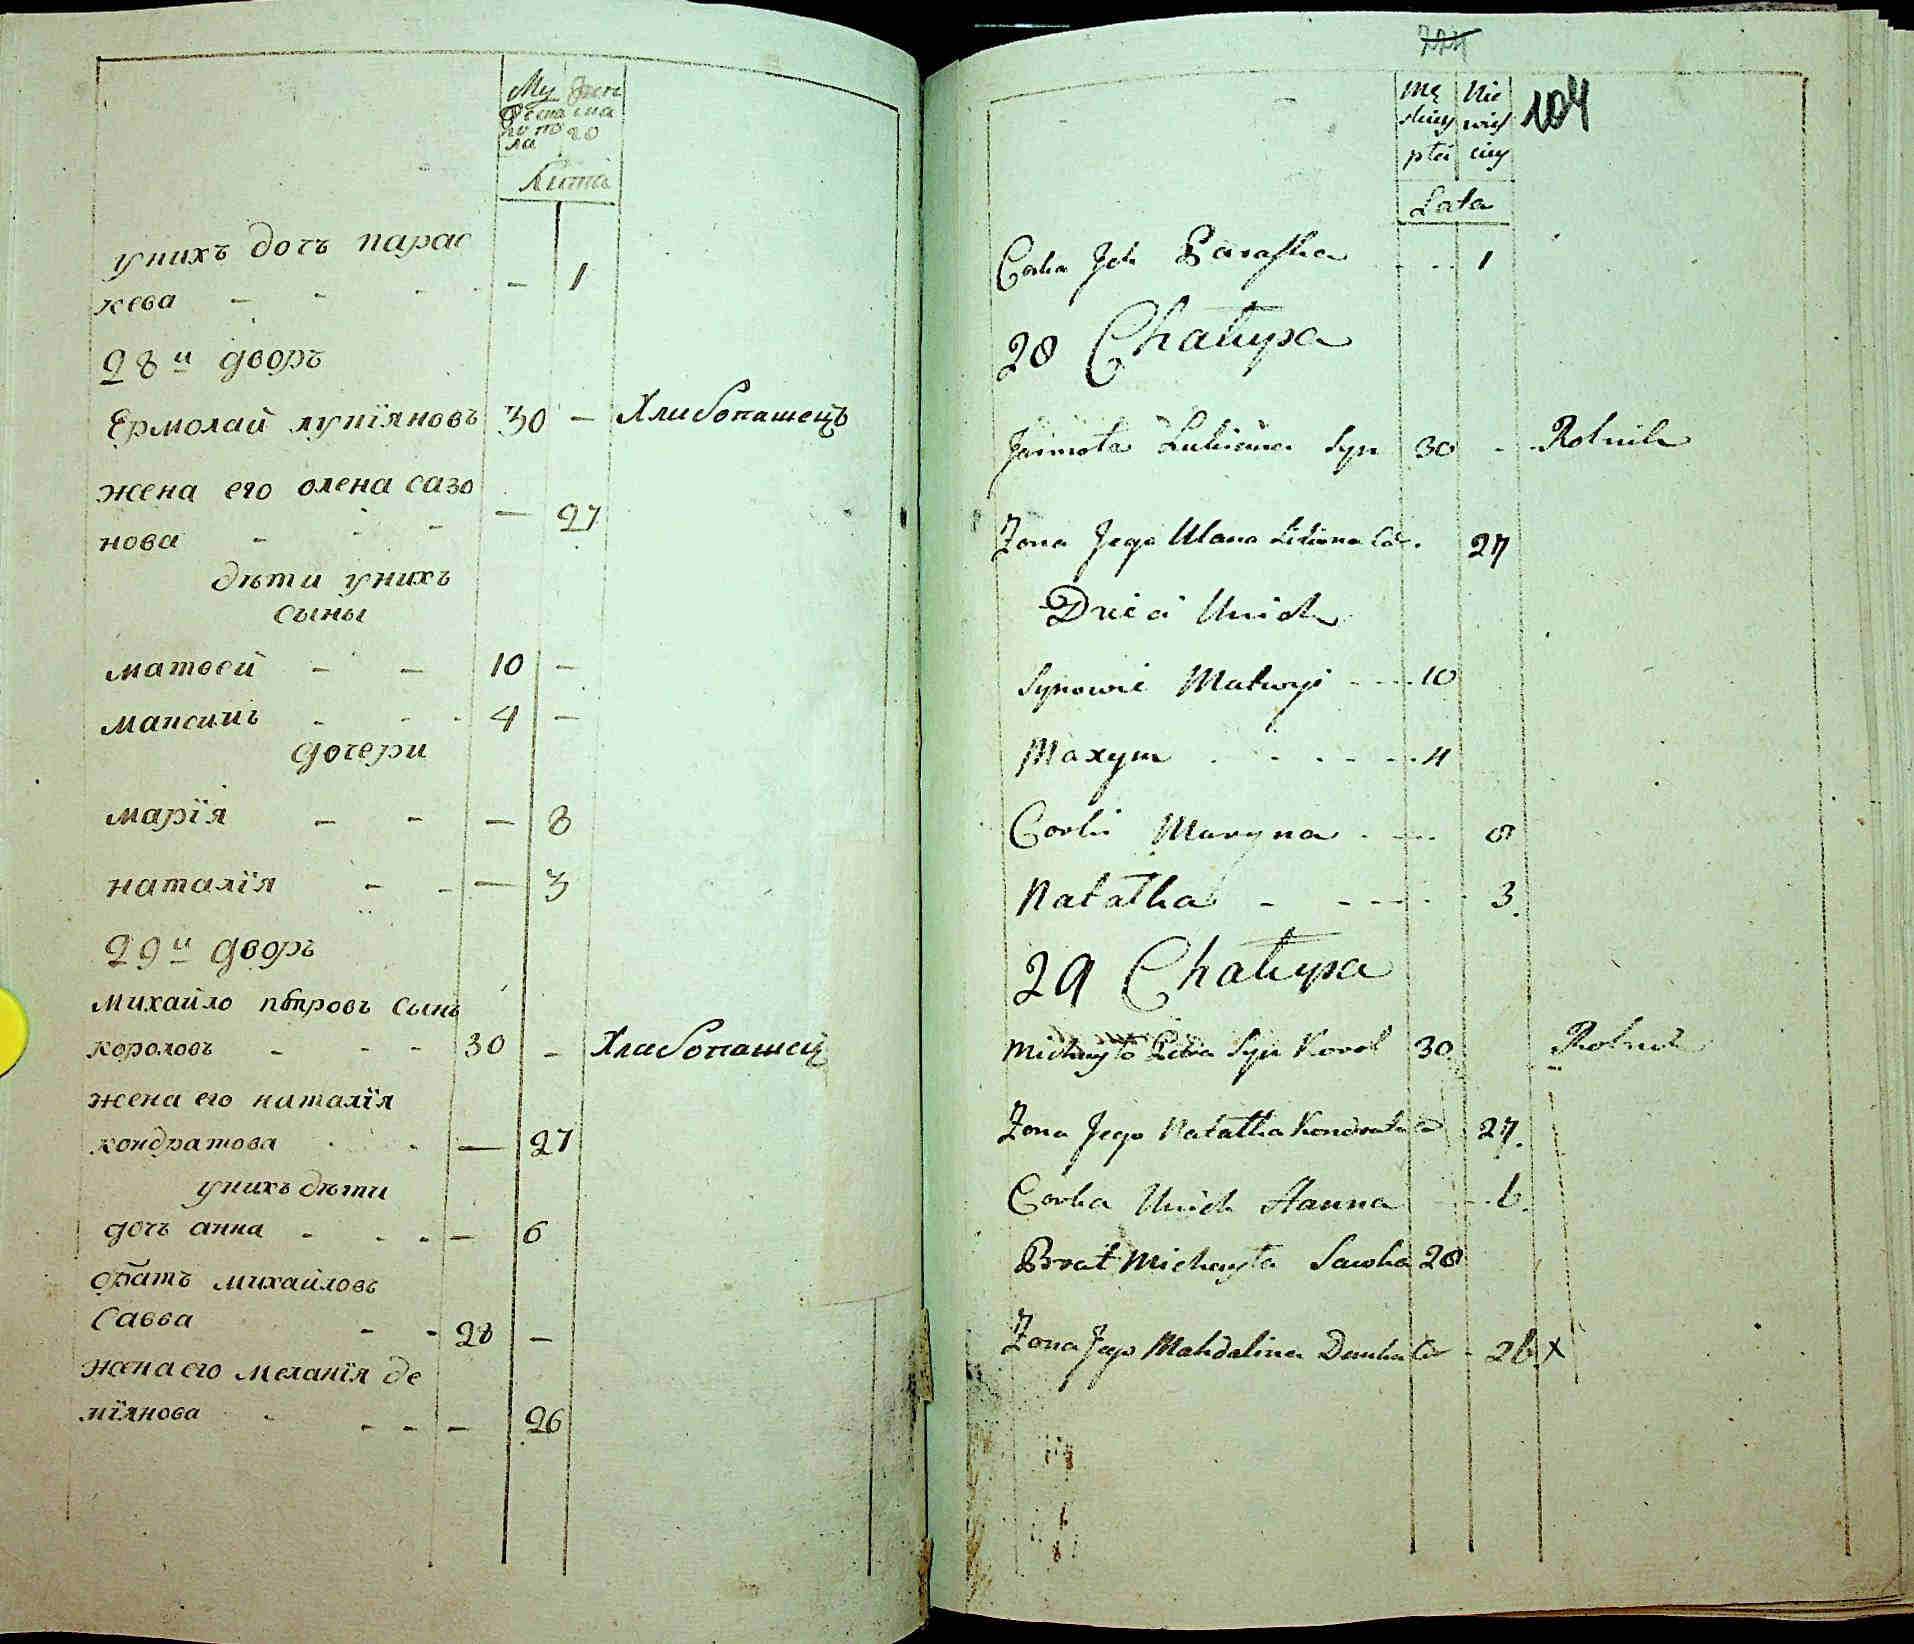 Му Жен
жеска ска
го по го
ла
Лита
у нихъ дочъ парас
кева - - - - - 1
28й дворъ
Ермолай лукїяновъ 30 - Хлибопашецъ
жена его олена сазо
нова - - - - 27
дѣти у нихъ
сыны
матвей - - 10 -
максимъ - - - 4 -
дочери
марїя - - - 8
наталїя - - - 3
29й дворъ
михайло пѣтровъ сынъ
короловъ - - - 30 - Хлибопашецъ
жена его наталїя
кондратова - - - 27
у нихъ дѣти
дочъ анна - - - - 6
братъ михайловъ
Савва - - 28 -
жена его меланїя де
мїянова - - - - 26
104
Mę Nie
skiey wieś
płci ciey
Lata
Corka Ich Paraska - - - 1
28 Chałupa
Jarmoła Lukiana Syn 30 - Rolnik
Zona Jego Ulana 27
Dzieci Unich
Synowie Matwyi - - - 10
Maxym - - - - - 4
Corki Maryna - - - 8
Natalka - - - - - 3.
29 Chałupa
Michayło Petra Syn Korol 30 Rolnik
Zona Jego Natalka Kondrata Co 27.
Corka Unich Hanna - - - 6.
Brat Michayła Sawka 28
Zona Jego Mahdalina Demka Co - 26 x